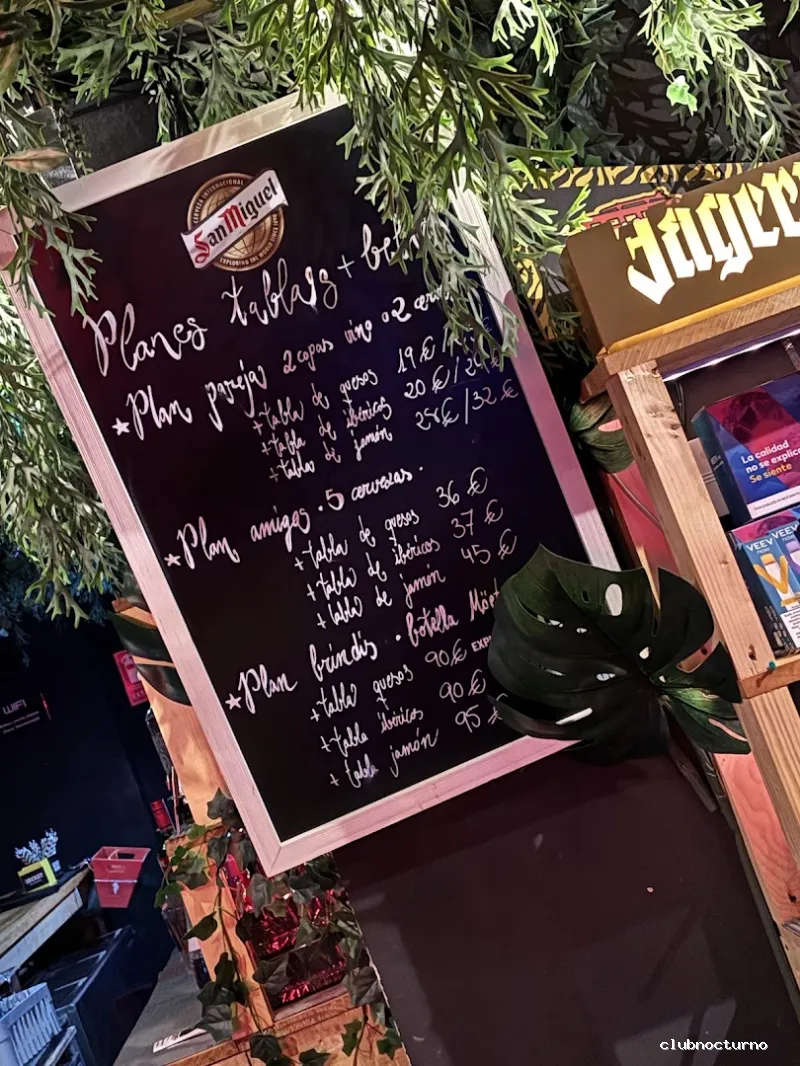 CERVEZA INTERNACIONAL
San Miguel
EXPLORING THE WORLD SINCE 1890
Planes tablas +
★ Plan pareja 2 copas vino o 2
+ tabla de quesos 19 € /
+ tabla de ibéricos 20 € /
+ tabla de jamón 28 € / 32 €
★ Plan amigos · 5 cervezas ·
+ tabla de quesos 36 €
+ tabla de ibéricos 37 €
+ tabla de jamón 45 €
★ Plan brindis · botella Möet
+ tabla quesos 90 €
+ tabla ibéricos 90 €
+ tabla jamón 95 €
Jäger
La calidad
no se explica
Se siente
VEEV VEEV
WIFI
clubnocturno